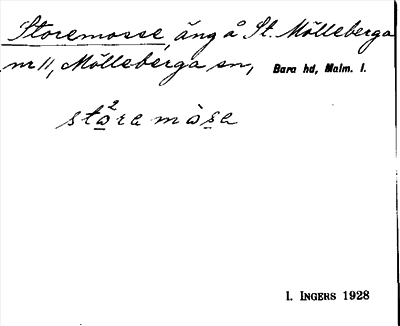 Storemosse, äng å St. Mölleberga
nr 11, Mölleberga sn, Bara hd, Malm. l.
stò̲²re mòs̲e
I. INGERS 1928